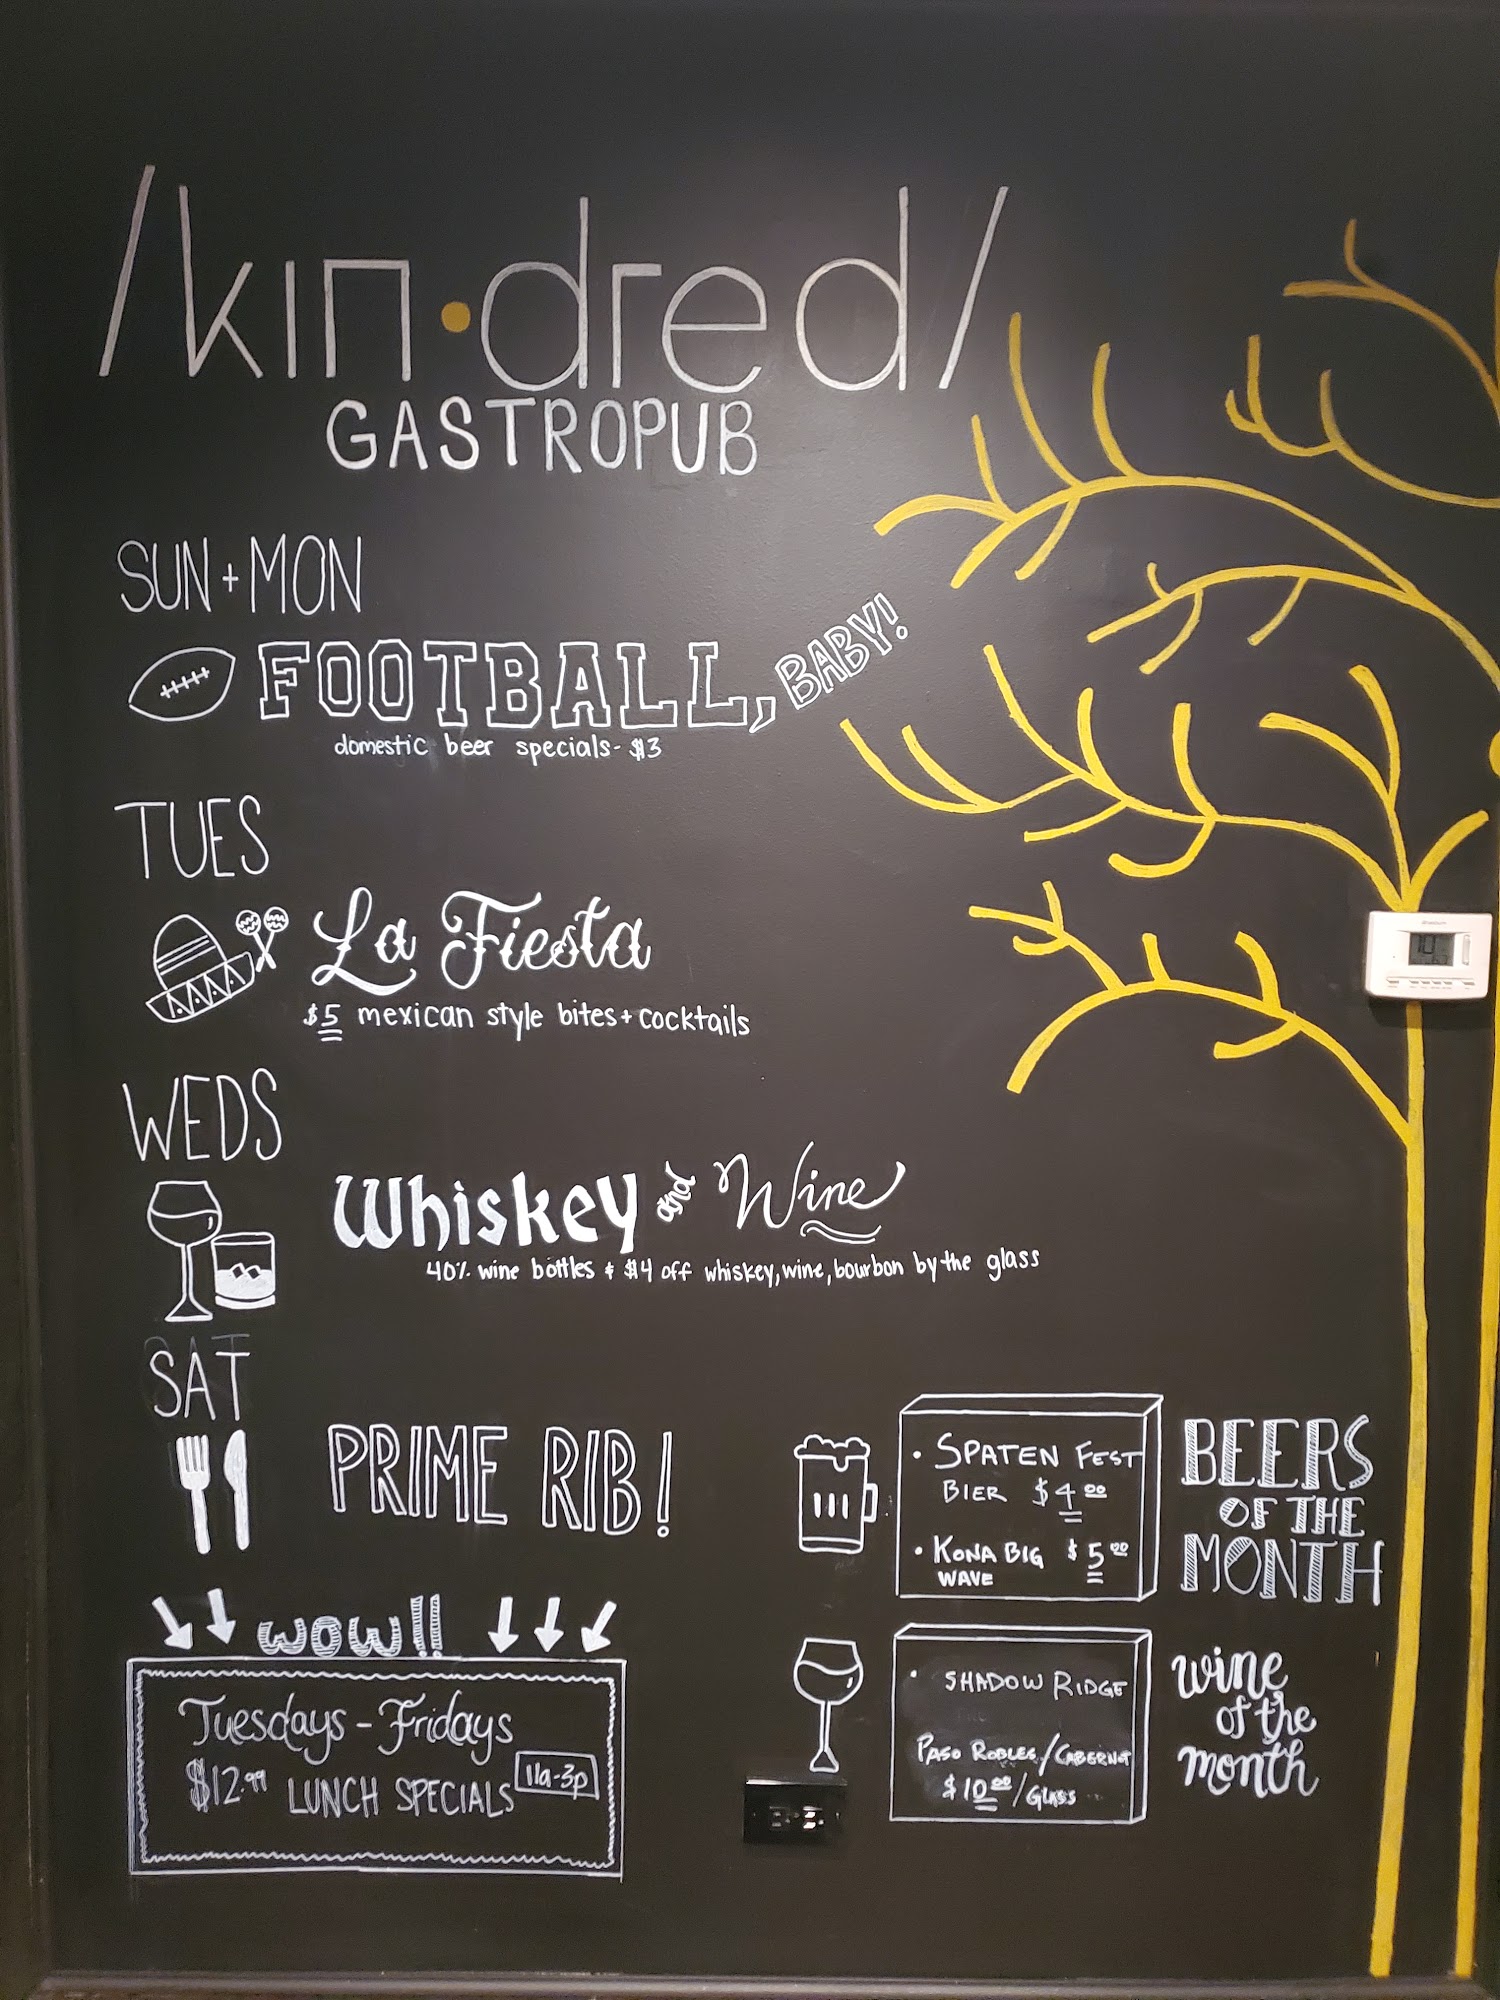 /kin·dred/
GASTROPUB
SUN + MON
FOOTBALL, BABY!
domestic beer specials- $3
TUES
La Fiesta
$5 mexican style bites + cocktails
WEDS
Whiskey and Wine
40% wine bottles & $4 off whiskey, wine, bourbon by the glass
SAT
PRIME RIB!
WOW!!
Tuesdays - Fridays
$12.99 LUNCH SPECIALS 11a-3p
• SPATEN FEST
BIER $4.00
• KONA BIG $5.00
WAVE
BEERS
OF THE
MONTH
• SHADOW RIDGE
PASO ROBLES/CABERNET
$10.00/GLASS
wine
of the
month